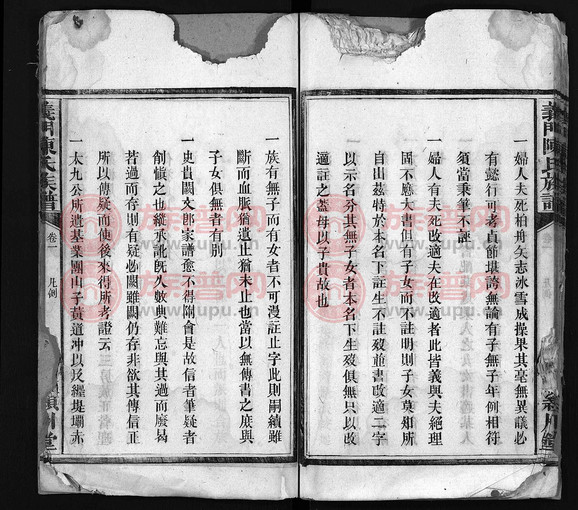 義門陳氏族譜
一婦人夫死柏舟矢志冰雪成操果其毫無異議必
有懿行可考貞節堪誇無論有子無子年例相符
須當秉筆不諱
一婦人有夫死改適夫在改適者此皆義與夫絕理
固不應大書但有子女而不註明則子女莫知所
自出茲特於本名下註生不註歿並書改適二字
以示名分其無子女者本名下生歿俱無只以改
適註之蓋母以子貴故也
一族有無子而有女者不可漫註止字此則嗣續雖
斷而血脈猶遺止猶未止也當以無傳書之庶與
子女俱無者有別
一史貴闕文郎家譜愈不得剛會是故信者筆疑者
創慎之也縱承訛既久數典難忘與其過而廢曷
若過而存則有疑必闕雖闕仍存非欲其傳信正
所以傳疑而使後來得所考證云
一太九公所遺基業團山子黃道冲以及經堤壩赤
義門陳氏族譜
卷一
凡例
潁川堂
族譜网
www.jiapu.com